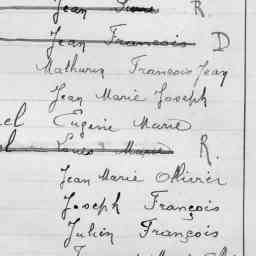 Jean R.
Jean Francois D
Mathurin Francois Jean
Jean Marie Joseph
el Eugène Marie
Louis Marie R.
Jean Marie Ollivier
Joseph François
Julien François